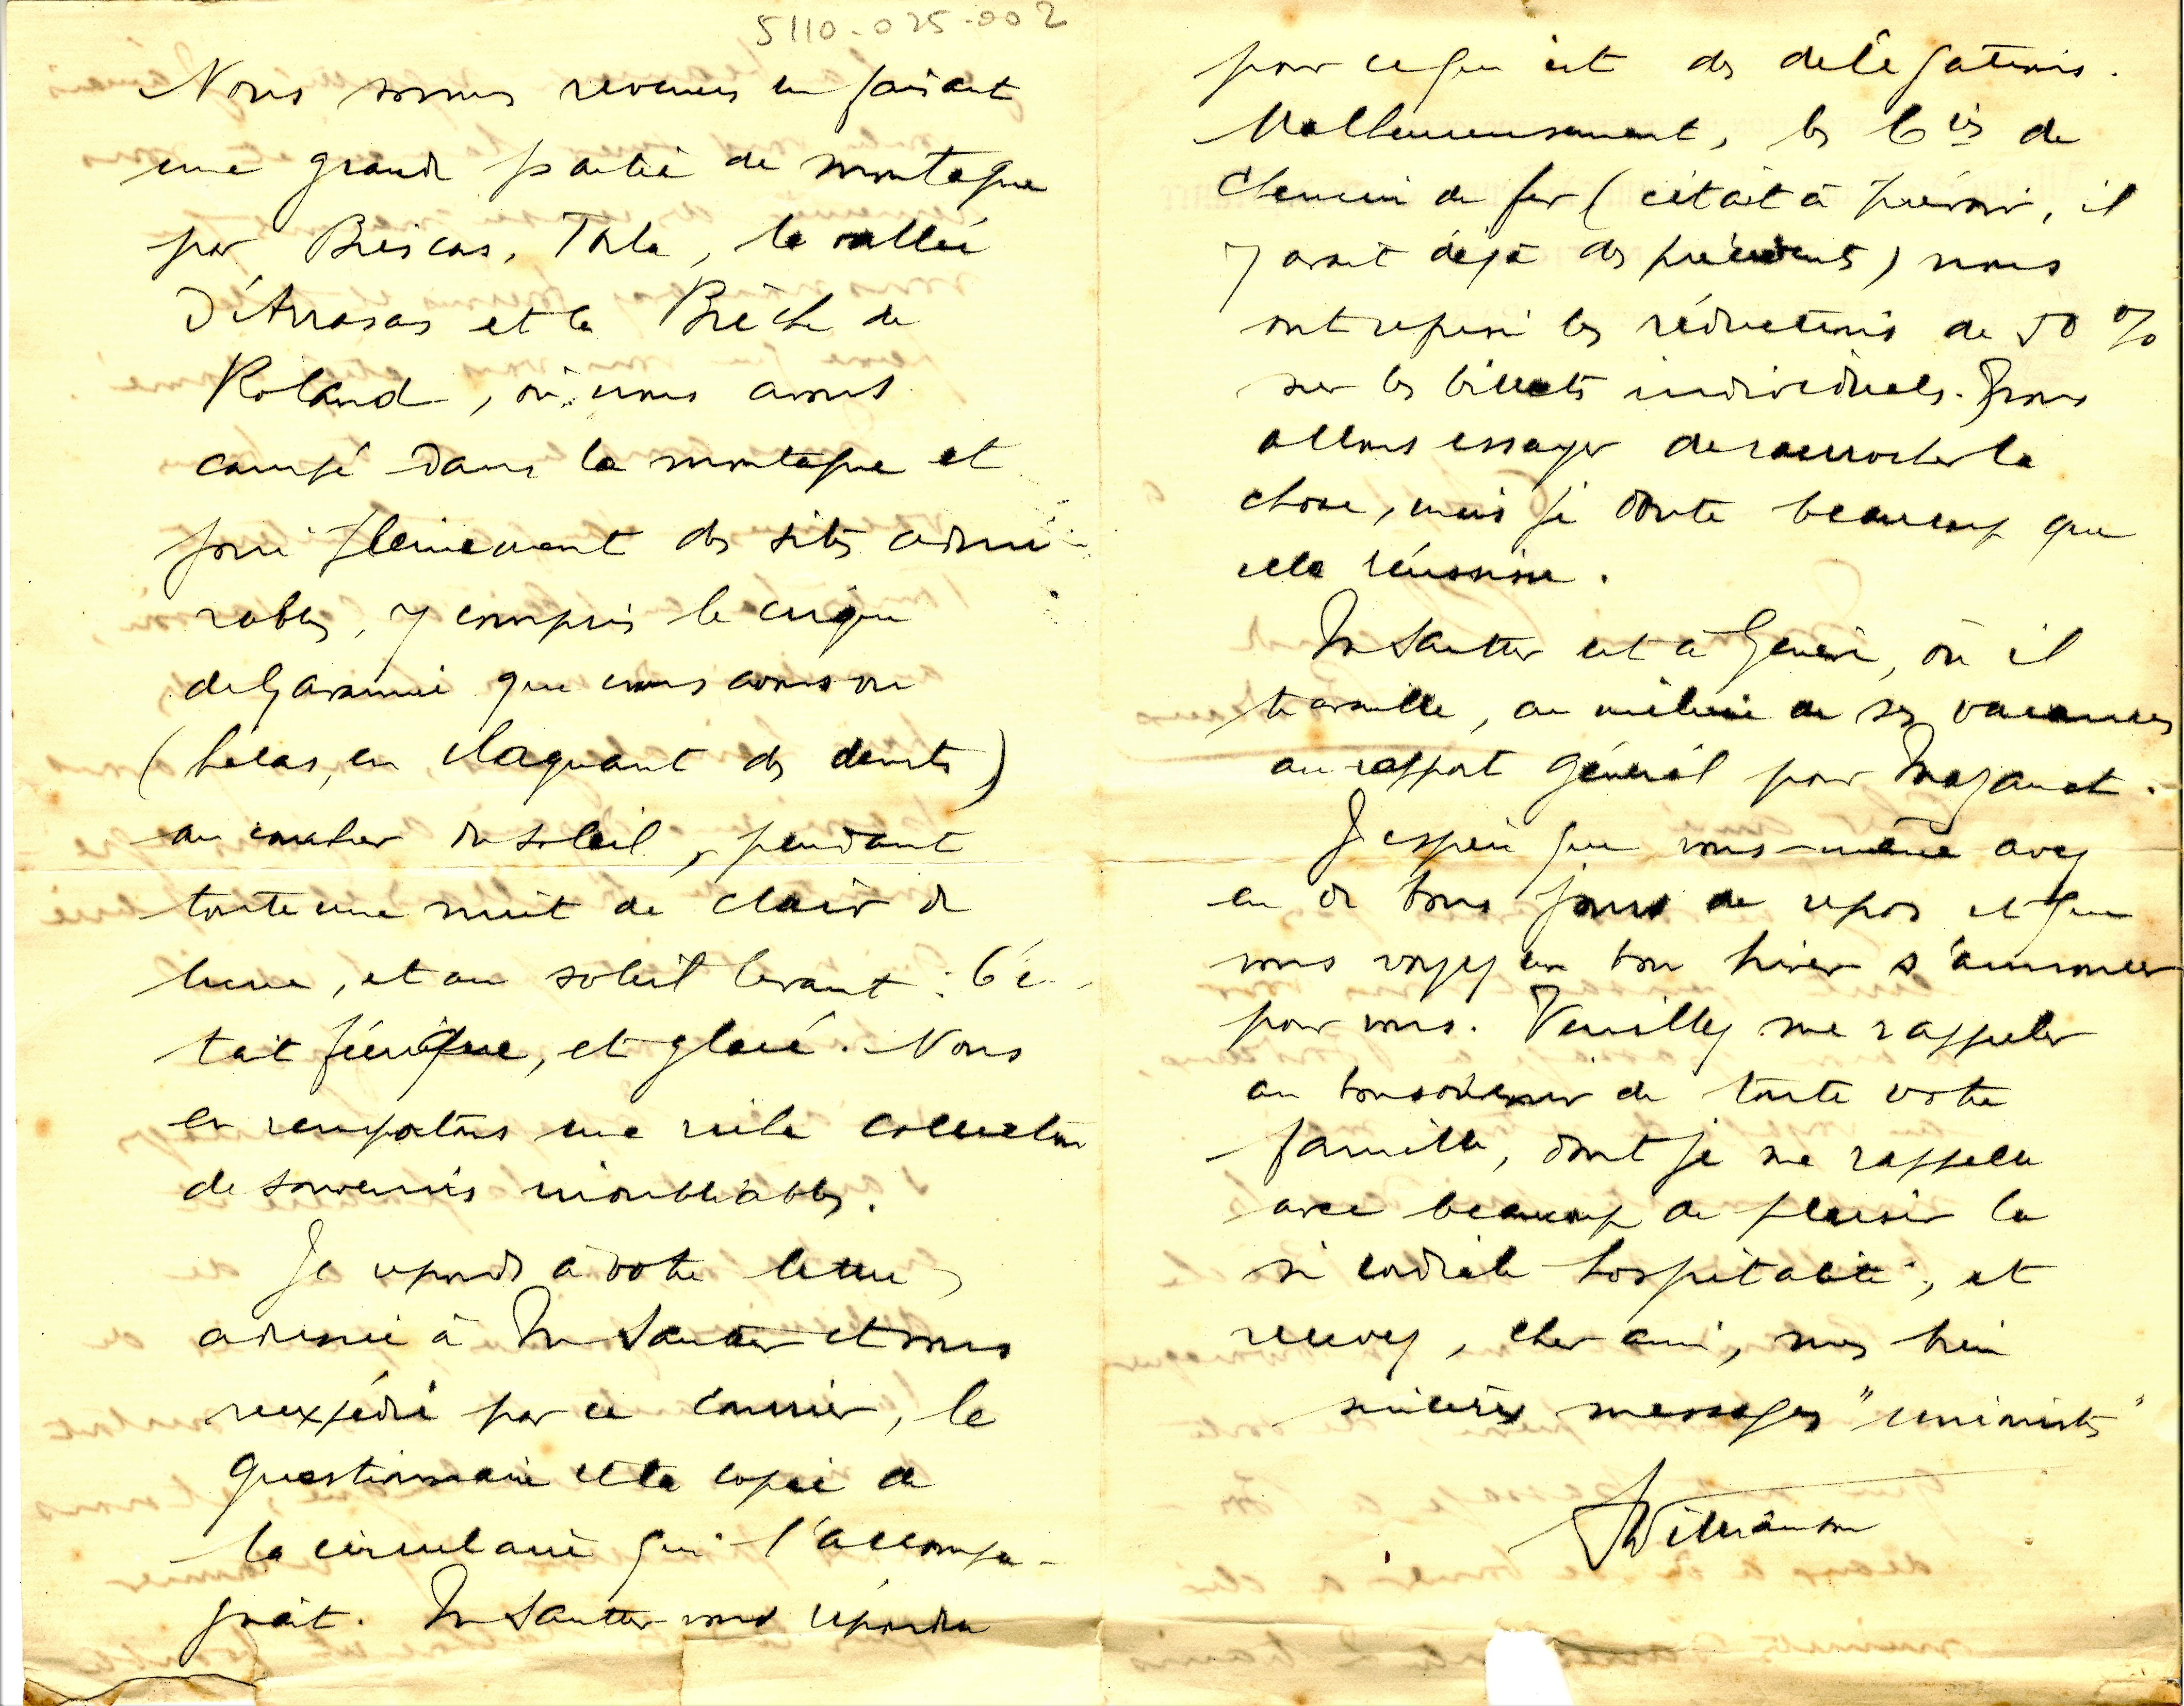 5110-025-002
Nous sommes revenus en faisant
une grande partie de montagne
par Biescas, Torla, la vallée
d'Arrasas et la Brèche de
Roland, où nous avons
campé dans la montagne et
joui pleinement des sites admi-
rables, y compris le cirque
de Gavarnie que nous avons vu
(hélas, en claquant des dents)
au coucher du soleil, pendant
toute une nuit de clair de
lune, et au soleil levant : C'é-
tait féerique, et glacé. Nous
en remportons une riche collection
de souvenirs inoubliables.
Je réponds à votre lettre
adressée à Mr Sautter et vous
reexpédie par ce courrier, le
questionnaire et la copie de
la circulaire qui l'accompa-
gnait. Mr Sautter vous répondra
pour ce qui est des délégations.
Malheureusement, les Cies de
Chemin de fer (c'était à prévoir, il
y avait déjà des précédents) nous
ont refusé les réductions de 50 %
sur les billets individuels. Nous
allons essayer de raccrocher la
chose, mais je doute beaucoup que
cela réussisse.
Mr Sautter est à Genève, où il
travaille, au milieu de ses vacances
au rapport général pour Mazamet.
J'espère que vous-même avez
eu de bons jours de repos et que
vous voyez un bon hiver s'annoncer
pour vous. Veuillez me rappeler
au bon souvenir de toute votre
famille, dont je me rappelle
avec beaucoup de plaisir la
si cordiale hospitalité, et
recevez, cher ami, mes bien
sincères messages "unionistes"
Williamson